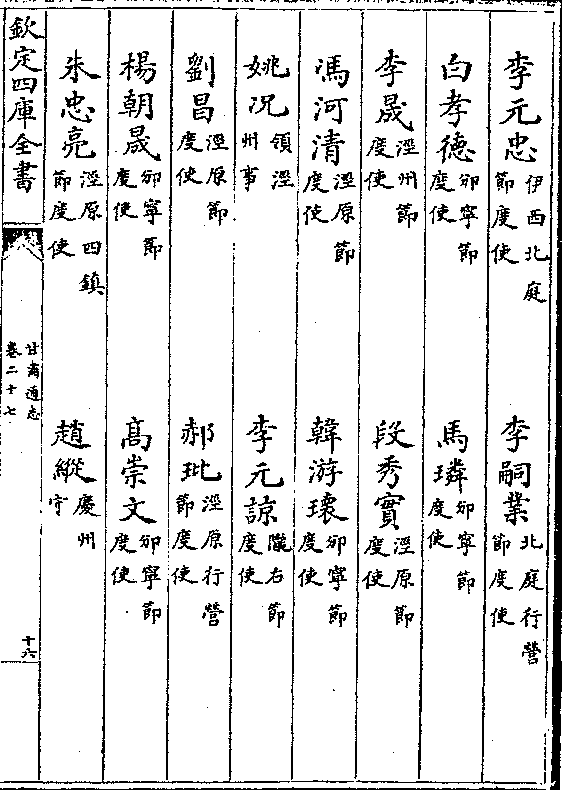 李元忠伊西北庭節度使 李嗣業北庭行營節度使
白孝德邠寧節度使 馬璘邠寧節度使
李晟涇州節度使 段秀實涇原節度使
馮河清涇原節度使 韓游瓌邠寧節度使
姚况領涇州事 李元諒隴右節度使
劉昌涇原節度使 郝玭涇原行營節度使
楊朝晟邠寧節度使 髙崇文邠寧節度使
朱忠亮涇原四鎮節度使 趙縱慶州守
欽定四庫全書
甘肅通志
卷二十七
十六